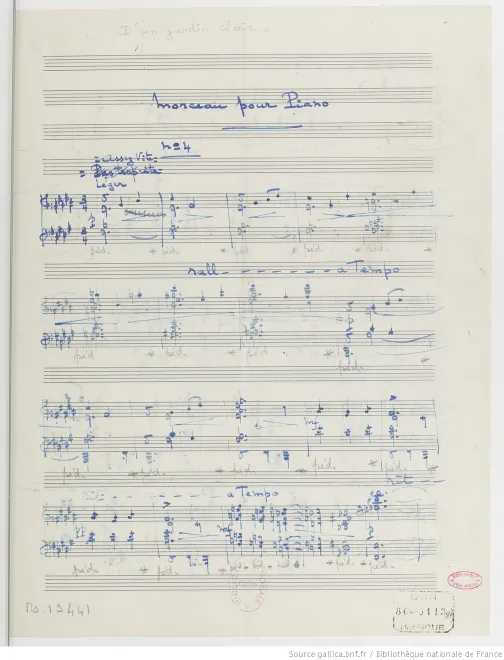 D'un jardin clair -
Morceau pour Piano
nº 4
= assez vite =
Léger
péd. * péd. * péd. * péd. * péd. *
rall - - - - - - - a Tempo
péd * péd. * péd * péd. *
mf
péd. * péd. * péd. * péd. * péd. *
rit -
- - - - - a Tempo
mf
péd. * péd. * péd. * péd. * péd. * péd. * péd.
Mo. 19441
DON
MUSIQUE
Source gallica.bnf.fr / Bibliothèque nationale de France